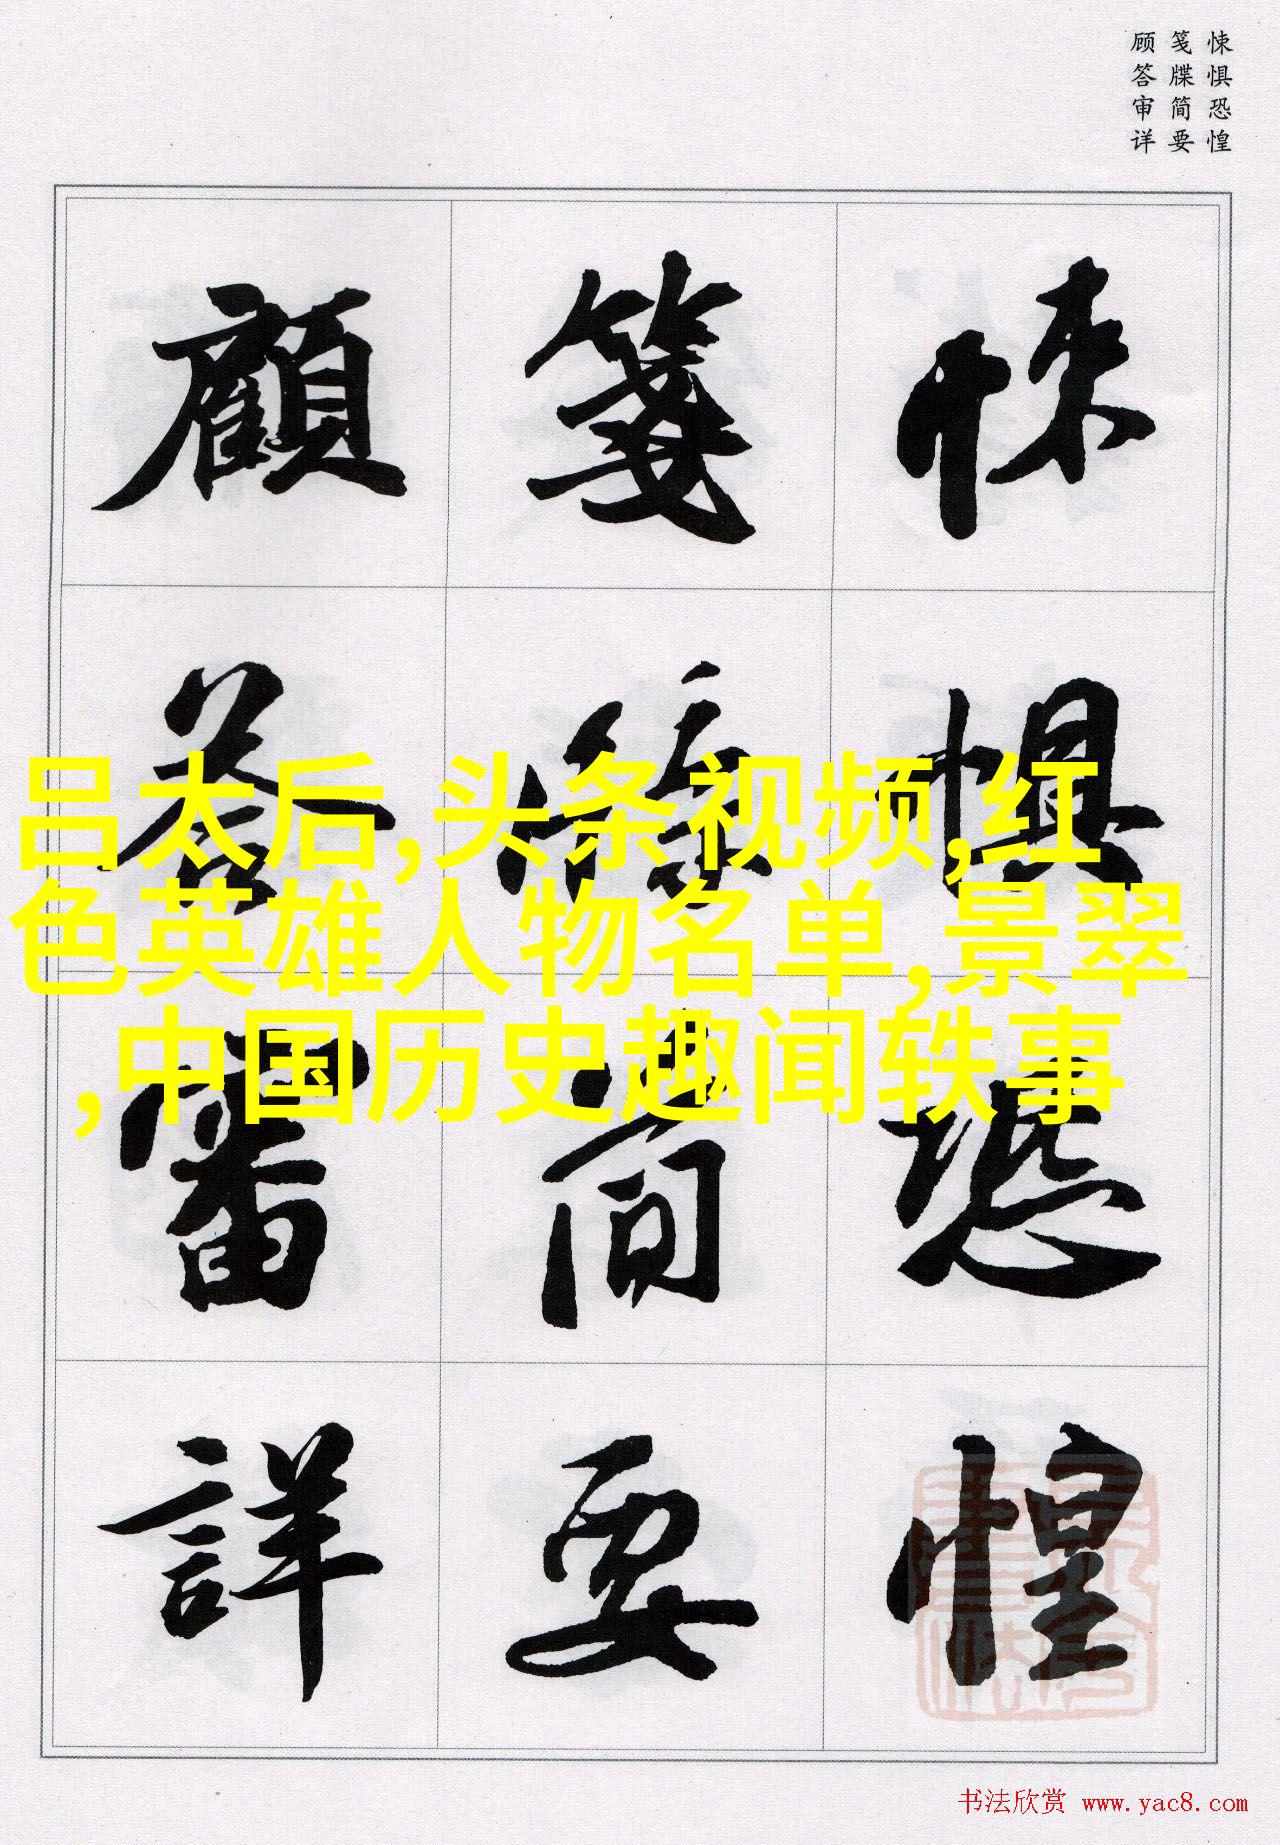 悚惧恐惶
笺牒简要
顾答审详
悚懼恐惶
箋牒簡要
顧答審詳
吕太后,头条视频,红
色英雄人物名单,景翠
,中国历史趣闻轶事
书法欣赏 www.yac8.com